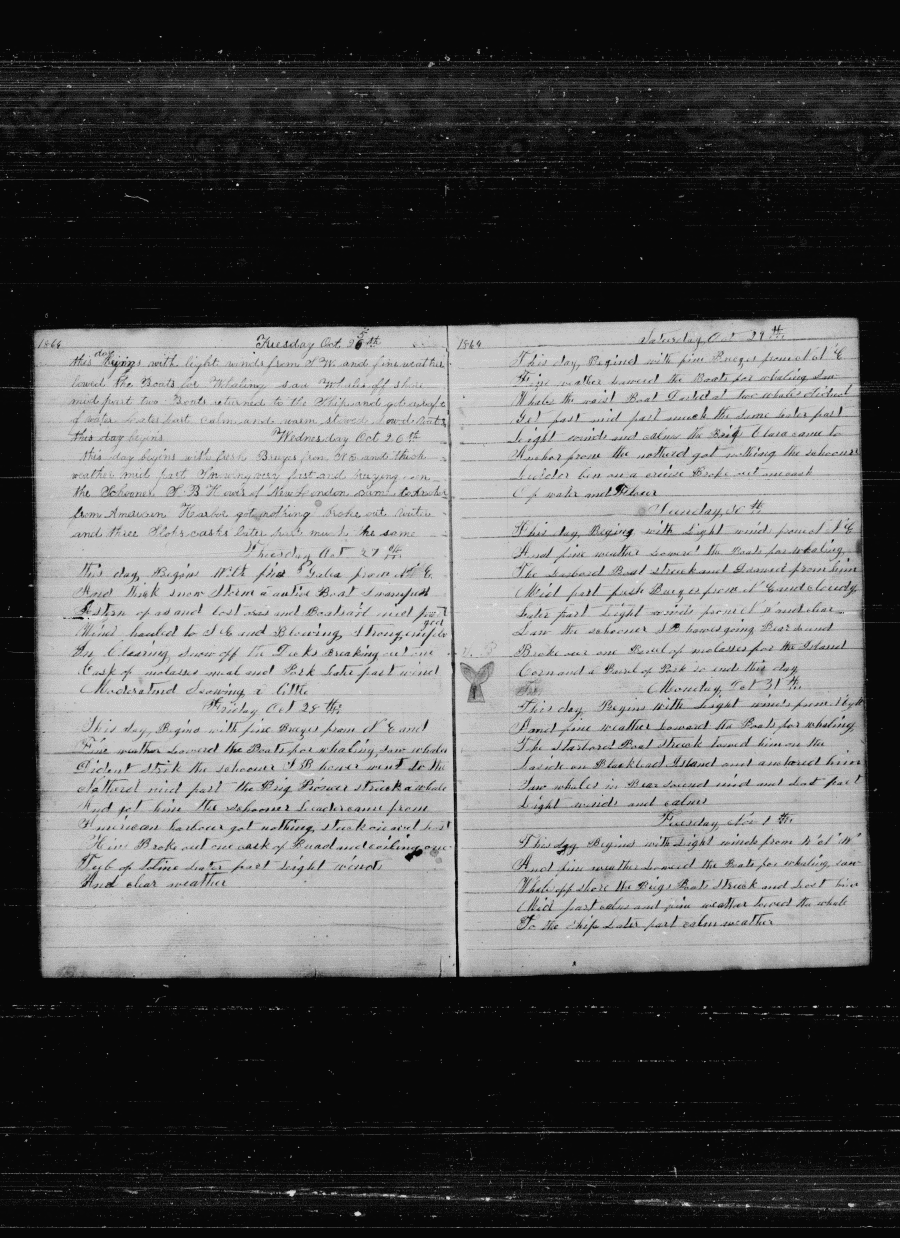 1864 Tuesday Oct 25th
this day begins with light winds from S W and fine weather
lowed the Boats for Whaling saw Whales off shore
mid part two Boats returned to the Ship and got a raft
of water Later part calm and warm
this day begins Wednesday Oct 26th
this day begins with fresh Brezes from N E and thick
weather mid part Snowing very fast and
the Schooner I B H of New London came to Anchor
from American Harbor got nothing Broke out Water
and three casks Later part much the same
Thursday Oct 27th
this day Begins With fine Gales from N E
And thick snow Storm a Boat Swamped
Astern of us and lost oars and Boatsail mid part
Wind hauled to S E and Blowing Strong
In Clearing Snow off the Decks Breaking out one
Cask of molasses meal and Pork Later part wind
Moderatind Snowing a little
Friday Oct 28th
This day Begins with fine Brezes from N E and
Fine weather Lowered the Boats for whaling Saw whales
Dident strik the schooner I B homer went to the
mid part the Brig Pioneer struck a whale
And got him the schooner Leader came from
American harbour got nothing struck one and lost
Him Broke out one cask of Bread and one
Tub of Later part Light winds
And clear weather
1864 Saturday Oct 29th
This day Begind with fine Brezes from N E
Fine weather Lowered the Boats for whaling Saw
Whales the waist Boat at two whales dident
Get fast mid part much the same Later part
Leight winds and calms the Brig Clara came to
Anchor from the notherd got nothing the schooner
ben on a cruise Broke out one cask
Of water and Flower
30th
This day Begins with Light wind from N E
And fine weather Lowered the Boats for whaling
The Larbord Boat struck and from him
Mid part fresh Brezes from N E and cloudy
Later part Light winds from N and clear
Saw the schooner I B homer going Bear Sound
Broke out one Barel of molasses for the Island
Corn and a Barel of Pork so end this day
Monday Oct 31th
This day Begins with Light winds from N by W
And fine weather Lowered the Boats for whaling
The Starbord Boat Struck towed him on the
Inside on Blacklead Island and anchored him
Saw whales in Bear Sound mid and Last part
Light winds and calms
Tuesday Nov 1th
This day Begins with Light winds from N of W
And fine weather Lowered the Boats for whaling saw
Whale off shore the Brigs Boats Struck and Lost him
Mid part calm and fine weather towed the whale
To the Ship Later part calm weather